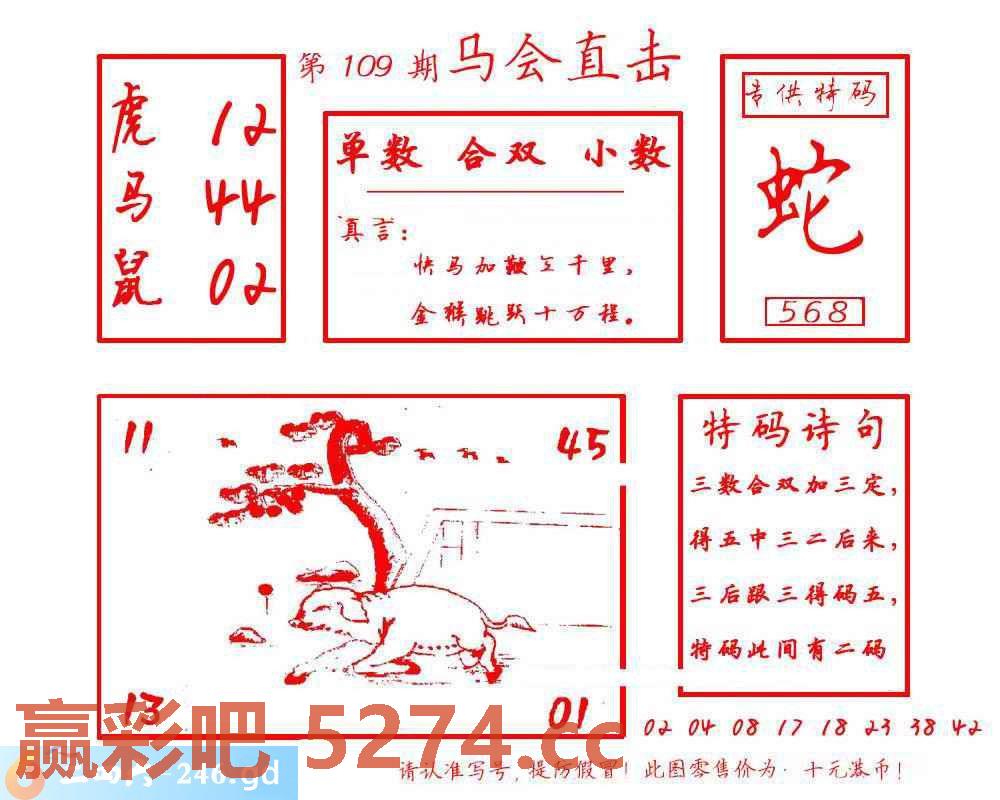 第 109 期 马会直击
虎 12
马 44
鼠 02
单数 合双 小数
真言：
快马加鞭三千里，
金猴跳跃十万程。
专供特码
蛇
568
11
45
13
01
特码诗句
三数合双加三定，
得五中三二后来，
三后跟三得码五，
特码此间有二码
02 04 08 17 18 23 38 42
赢彩吧 5274.cc
-246.gd
请认准写号，提防假冒！此图零售价为·十元港币！